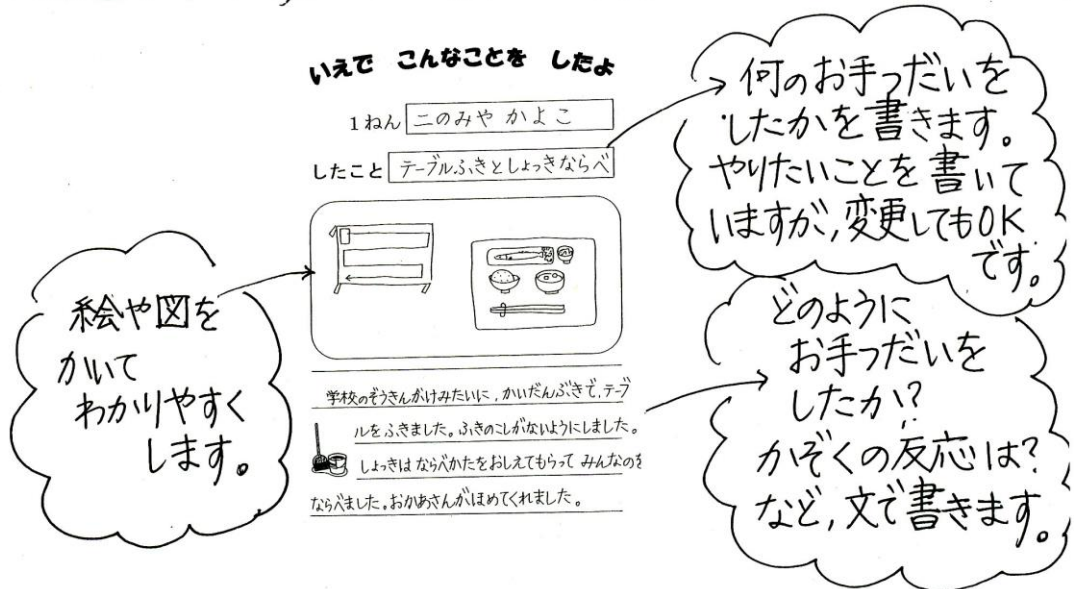 いえで こんなことを したよ
1ねん 二のみや かよこ
したこと テーブルふきとしょっきならべ
学校のぞうきんがけみたいに、かいだんぶきで、テーブ
ルをふきました。ふきのこしがないようにしました。
しょっきは ならべかたをおしえてもらって みんなのを
ならべました。おかあさんがほめてくれました。
絵や図を
かいて
わかりやすく
します。
何のお手つだいを
したかを書きます。
やりたいことを書いて
いますが,変更してもOK
です。
どのように
お手つだいを
したか?
かぞくの反応は?
など,文で書きます。